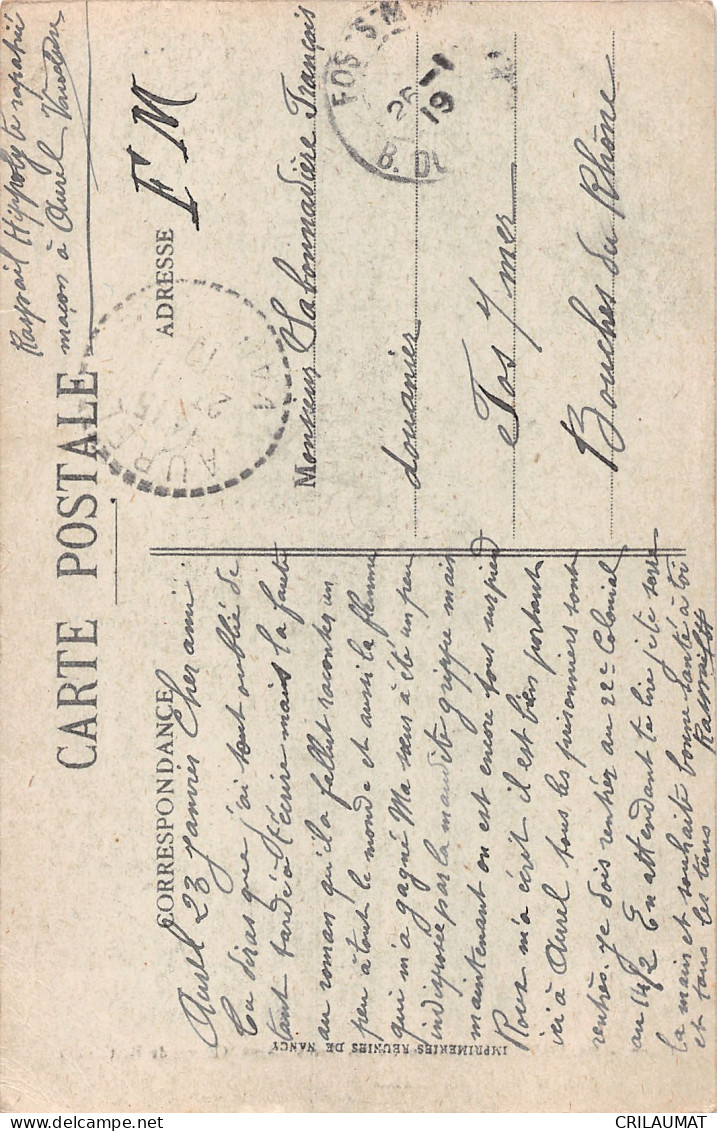 Raspail Hippolyte rapatrié
maçon à Aurel Vaucluse
CARTE POSTALE
CORRESPONDANCE
ADRESSE
F M
Aurel 23 janvier Cher ami
Tu diras que j'ai tout oublié de
tant tardé à t'écrire mais la faute
au roman qu'il a fallut raconter un
peu à tout le monde et aussi la flemme
qui m'a gagné Ma sœur a été un peu
indisposée par la maudite grippe mais
maintenant on est encore tous sur pied
Roux m'a écrit il est bien portant
ici à Aurel tous les prisonniers sont
rentrés. Je dois rentrer au 22e Colonial
au 14/2 En attendant te lire je te serre
la main et souhait bonne santé à toi
et tous les tiens
Monsieur Labonnadière François
douanier
Fos s/mer
Bouches du Rhône
FOS-S-M
26 -1
19
B. DU
AUREL
IMPRIMERIES RÉUNIES DE NANCY
CRILAUMAT